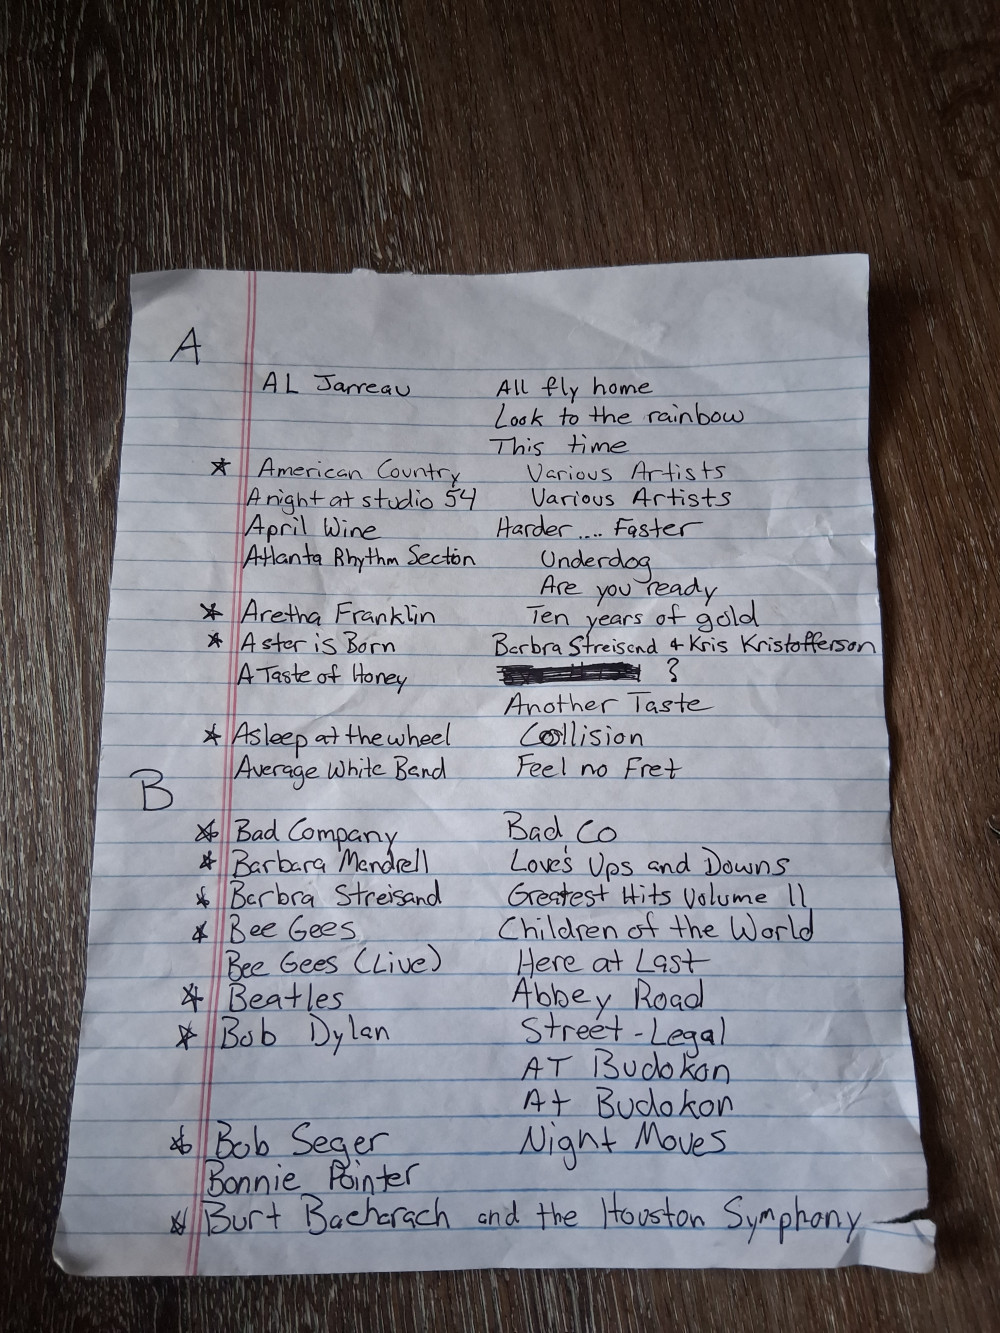 A
AL Jarreau All fly home
Look to the rainbow
This time
American Country Various Artists
A night at studio 54 Various Artists
April Wine Harder .... Faster
Atlanta Rhythm Section Underdog
Are you ready
Aretha Franklin Ten years of gold
A ster is Born Barbra Streisand + Kris Kristofferson
A Taste of Honey ?
Another Taste
Asleep at the wheel Collision
Average White Band Feel no Fret
B
Bad Company Bad Co
Barbara Mandrell Love's Ups and Downs
Barbra Streisand Greatest Hits Volume II
Bee Gees Children of the World
Bee Gees (Live) Here at Last
Beatles Abbey Road
Bob Dylan Street-Legal
AT Budokan
At Budokon
Bob Seger Night Moves
Bonnie Pointer
Burt Bacharach and the Houston Symphony